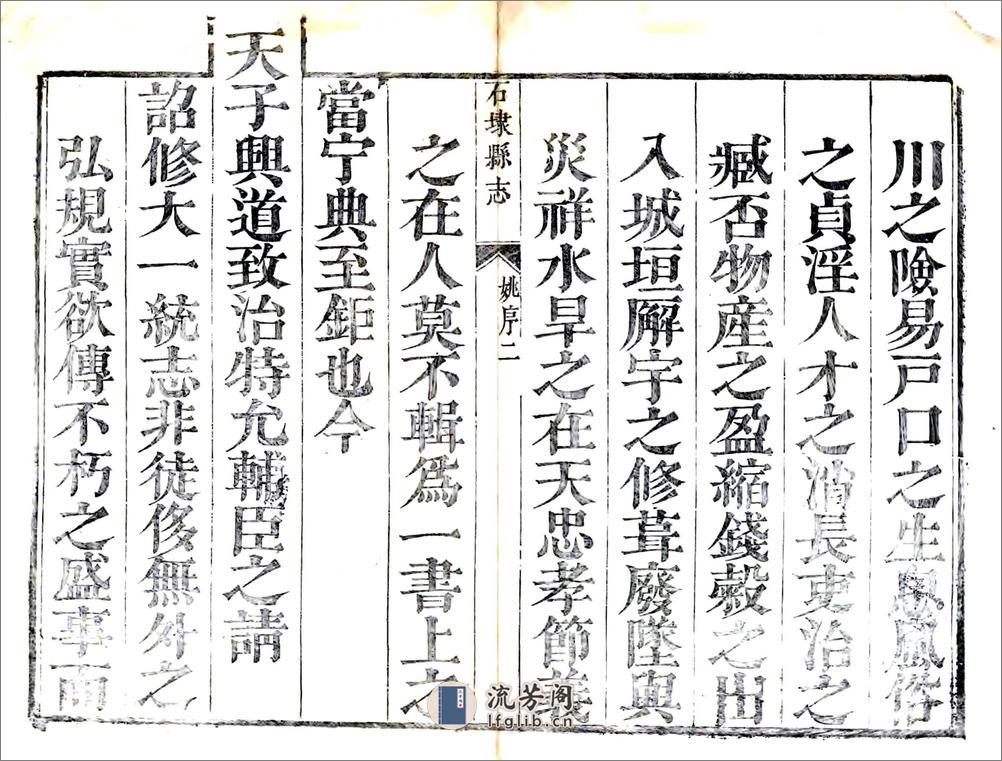 川之險易戸口之生息風俗
之貞淫人才之消長吏治之
臧否物産之盈縮錢穀之出
入城垣廨宇之修葺廢墜與
災祥水旱之在天忠孝節義
之在人莫不輯爲一書上之
石埭縣志
姚序二
當宁典至鉅也今
天子興道致治特允輔臣之請
詔修大一統志非徒侈無外之
弘規實欲傳不朽之盛事而
流芳阁
lfglib.cn